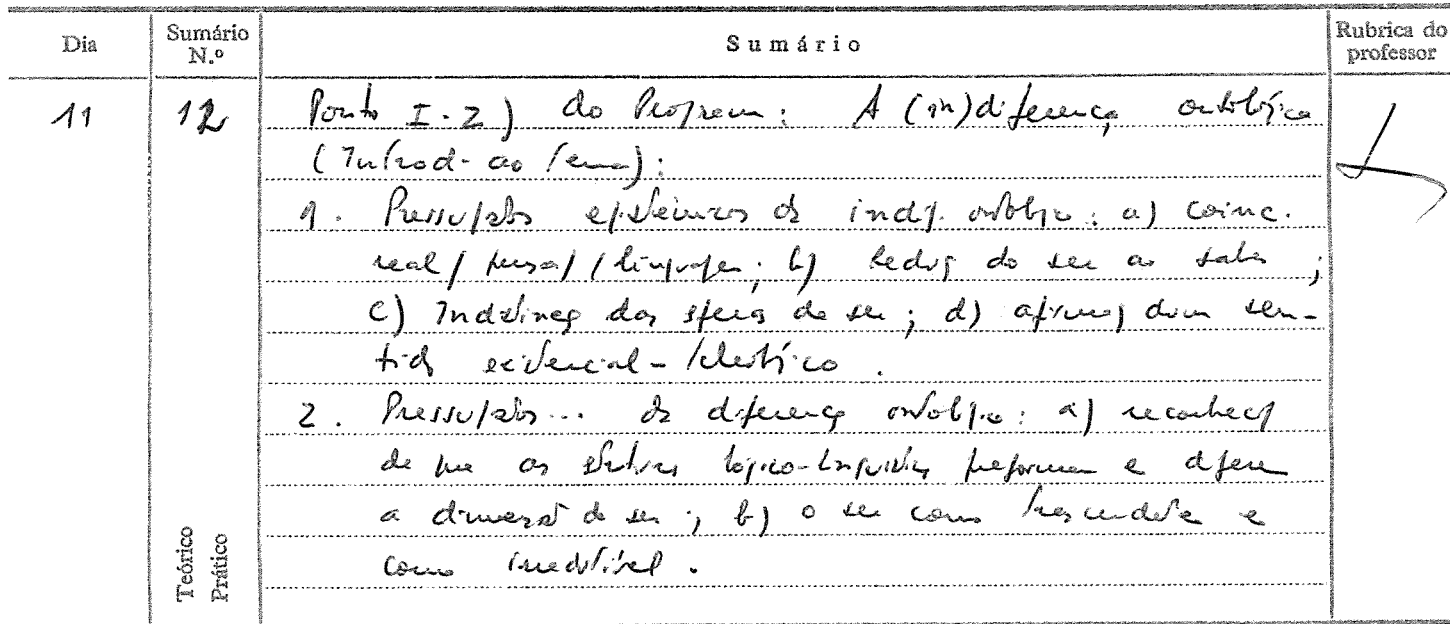 Dia
Sumário N.º
Sumário
Rubrica do professor
11
12
Ponto I.2) do Program: A (in)diferença ontológica
(Introd. ao tema):
1. Pressupostos epistémicos da indif. ontológica: a) coinc.
real/pensar/linguagem; b) Reduç do ser ao saber;
c) Indistinç das esferas do ser; d) afirmaç dum sen-
tido existencial-
2. Pressupostos... da diferença ontológica: a) reconhec
de que as estruturas lógico-linguísticas e
a dimensão do ser; b) o ser como transcendente e
como irredutível.
Teórico
Prático